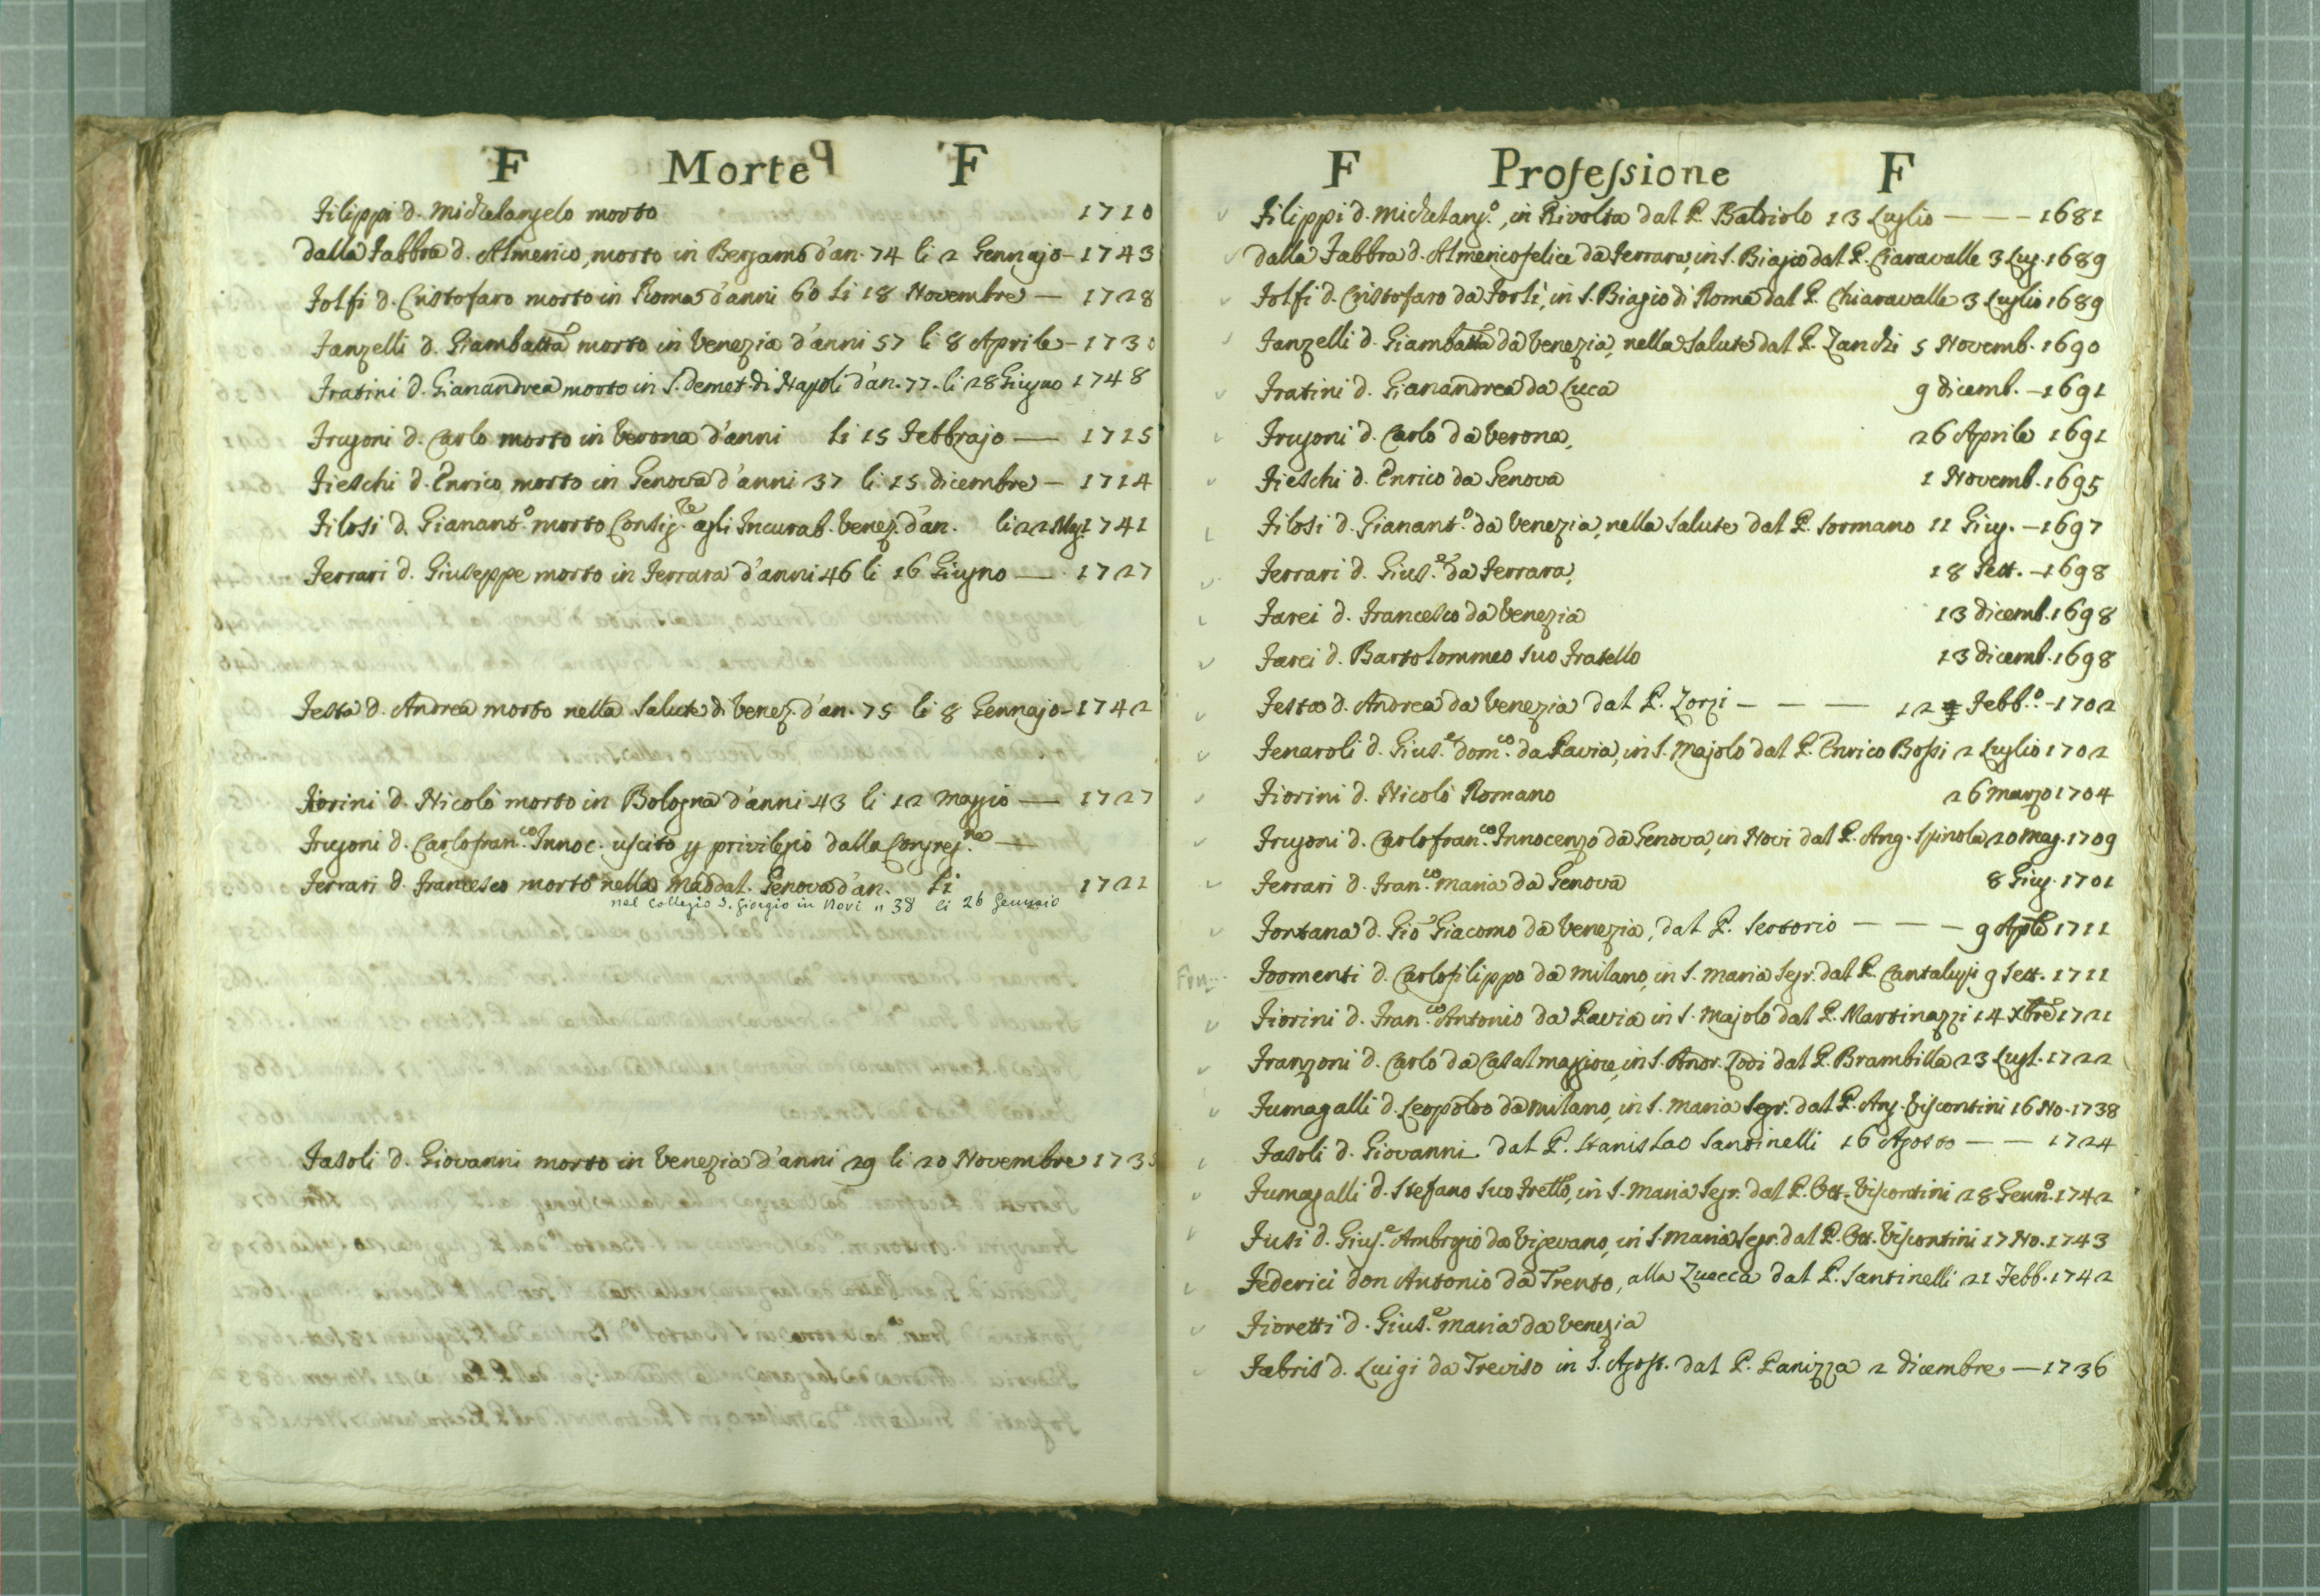 F Morte F
Filippi d. Michelangelo morto 1710
dalla Fabbra d. Almerico, morto in Bergamo d'an. 74 li 2 Gennajo - 1743
Folfi d. Cristofaro morto in Roma d'anni 60 li 18 Novembre — 1728
Fanzelli d. Giambatta morto in Venezia d'anni 57 li 8 Aprile - 173
Fratini d. Gianandrea morto in S. Demet. di Napoli d'an. 77. li 28 Giugno 1748
Frugoni d. Carlo morto in Verona d'anni li 15 Febbrajo — 1715
Fieschi d. Enrico morto in Genova d'anni 37 li 15 dicembre — 1714
Filosi d. Gianant.º morto Consig.re agli Incurab. Venez. d'an. li 22 1741
Ferrari d. Giuseppe morto in Ferrara d'anni 46 li 16 Giugno — 1727
Festa d. Andrea morto nella Salute di Venez. d'an. 75 li 8 Gennajo - 1742
Fiorini d. Nicolò morto in Bologna d'anni 43 li 12 Maggio — 1727
Frugoni d. Carlofran.co Innoc. uscito p privilegio dalla Congreg.ne —
Ferrari d. Francesco morto nella Maddal. Genova d'an. li 1721
nel Collegio S. Giorgio in Novi " 38 li 26 Gennaio
Fasoli d. Giovanni morto in Venezia d'anni 29 li 20 Novembre 173
F Professione F
Filippi d. Michelang.º, in Rivolta dal P. Baldiolo 13 Luglio — — — 1681
dalla Fabbra d. Almerico felice da Ferrara, in S. Biagio dal P. Ciaravalle 3 Lug. 1689
Folfi d. Cristofaro da Forlì, in S. Biagio di Roma dal P. Chiaravalle 3 Luglio 1689
Fanzelli d. Giambatta da Venezia, nella Salute dal P. Zanchi 5 Novemb. 1690
Fratini d. Gianandrea da Luca 9 dicemb. - 1691
Frugoni d. Carlo da Verona, 26 Aprile 1691
Fieschi d. Enrico da Genova 1 Novemb. 1695
Filosi d. Gianant.º da Venezia, nella Salute dal P. Sormano 11 Giug. - 1697
Ferrari d. Gius.e da Ferrara, 18 Sett. - 1698
Farei d. Francesco da Venezia 13 dicemb. 1698
Farei d. Bartolommeo suo Fratello 13 dicemb. 1698
Festa d. Andrea da Venezia dal P. Zorzi — — — 12 Febb.º - 1702
Fenaroli d. Gius.e Dom.co da Pavia, in S. Majolo dal P. Enrico Bossi 2 Luglio 1702
Fiorini d. Nicolò Romano 26 Marzo 1704
Frugoni d. Carlofran.co Innocenzo da Genova, in Novi dal P. Ang. Spinola, 20 Mag. 1709
Ferrari d. Fran.co Maria da Genova 8 Giug. 1701
Fontana d. Gio Giacomo da Venezia, dal P. Sertorio — — — 9 Aple 1711
Fromenti d. Carlofilippo da Milano, in S. Maria Segr. dal P. Cantalupi 9 Sett. 1711
Fiorini d. Fran.co Antonio da Pavia in S. Majolo dal P. Martinazzi 14 Xbre 1721
Franzoni d. Carlo da Casalmaggiore, in S. Andr. Lodi dal P. Brambilla 23 Lugl. 1722
Fumagalli d. Leopoldo da Milano, in S. Maria Segr. dal P. Ang. Viscontini 16 No. 1738
Fasoli d. Giovanni dal P. Stanislao Santinelli 16 Agosto — — 1724
Fumagalli d. Stefano suo Fretto, in S. Maria Segr. dal P. Ott. Viscontini 28 Genn.º 1742
Fusi d. Gius.e Ambrogio da Vigevano, in S. Maria Segr. dal P. Ott. Viscontini 17 No. 1743
Federici don Antonio da Trento, alla Zuecca dal P. Santinelli 21 Febb. 1742
Fioretti d. Gius.e Maria da Venezia
Fabris d. Luigi da Treviso in S. Agost. dal P. Panizza 2 dicembre — 1736